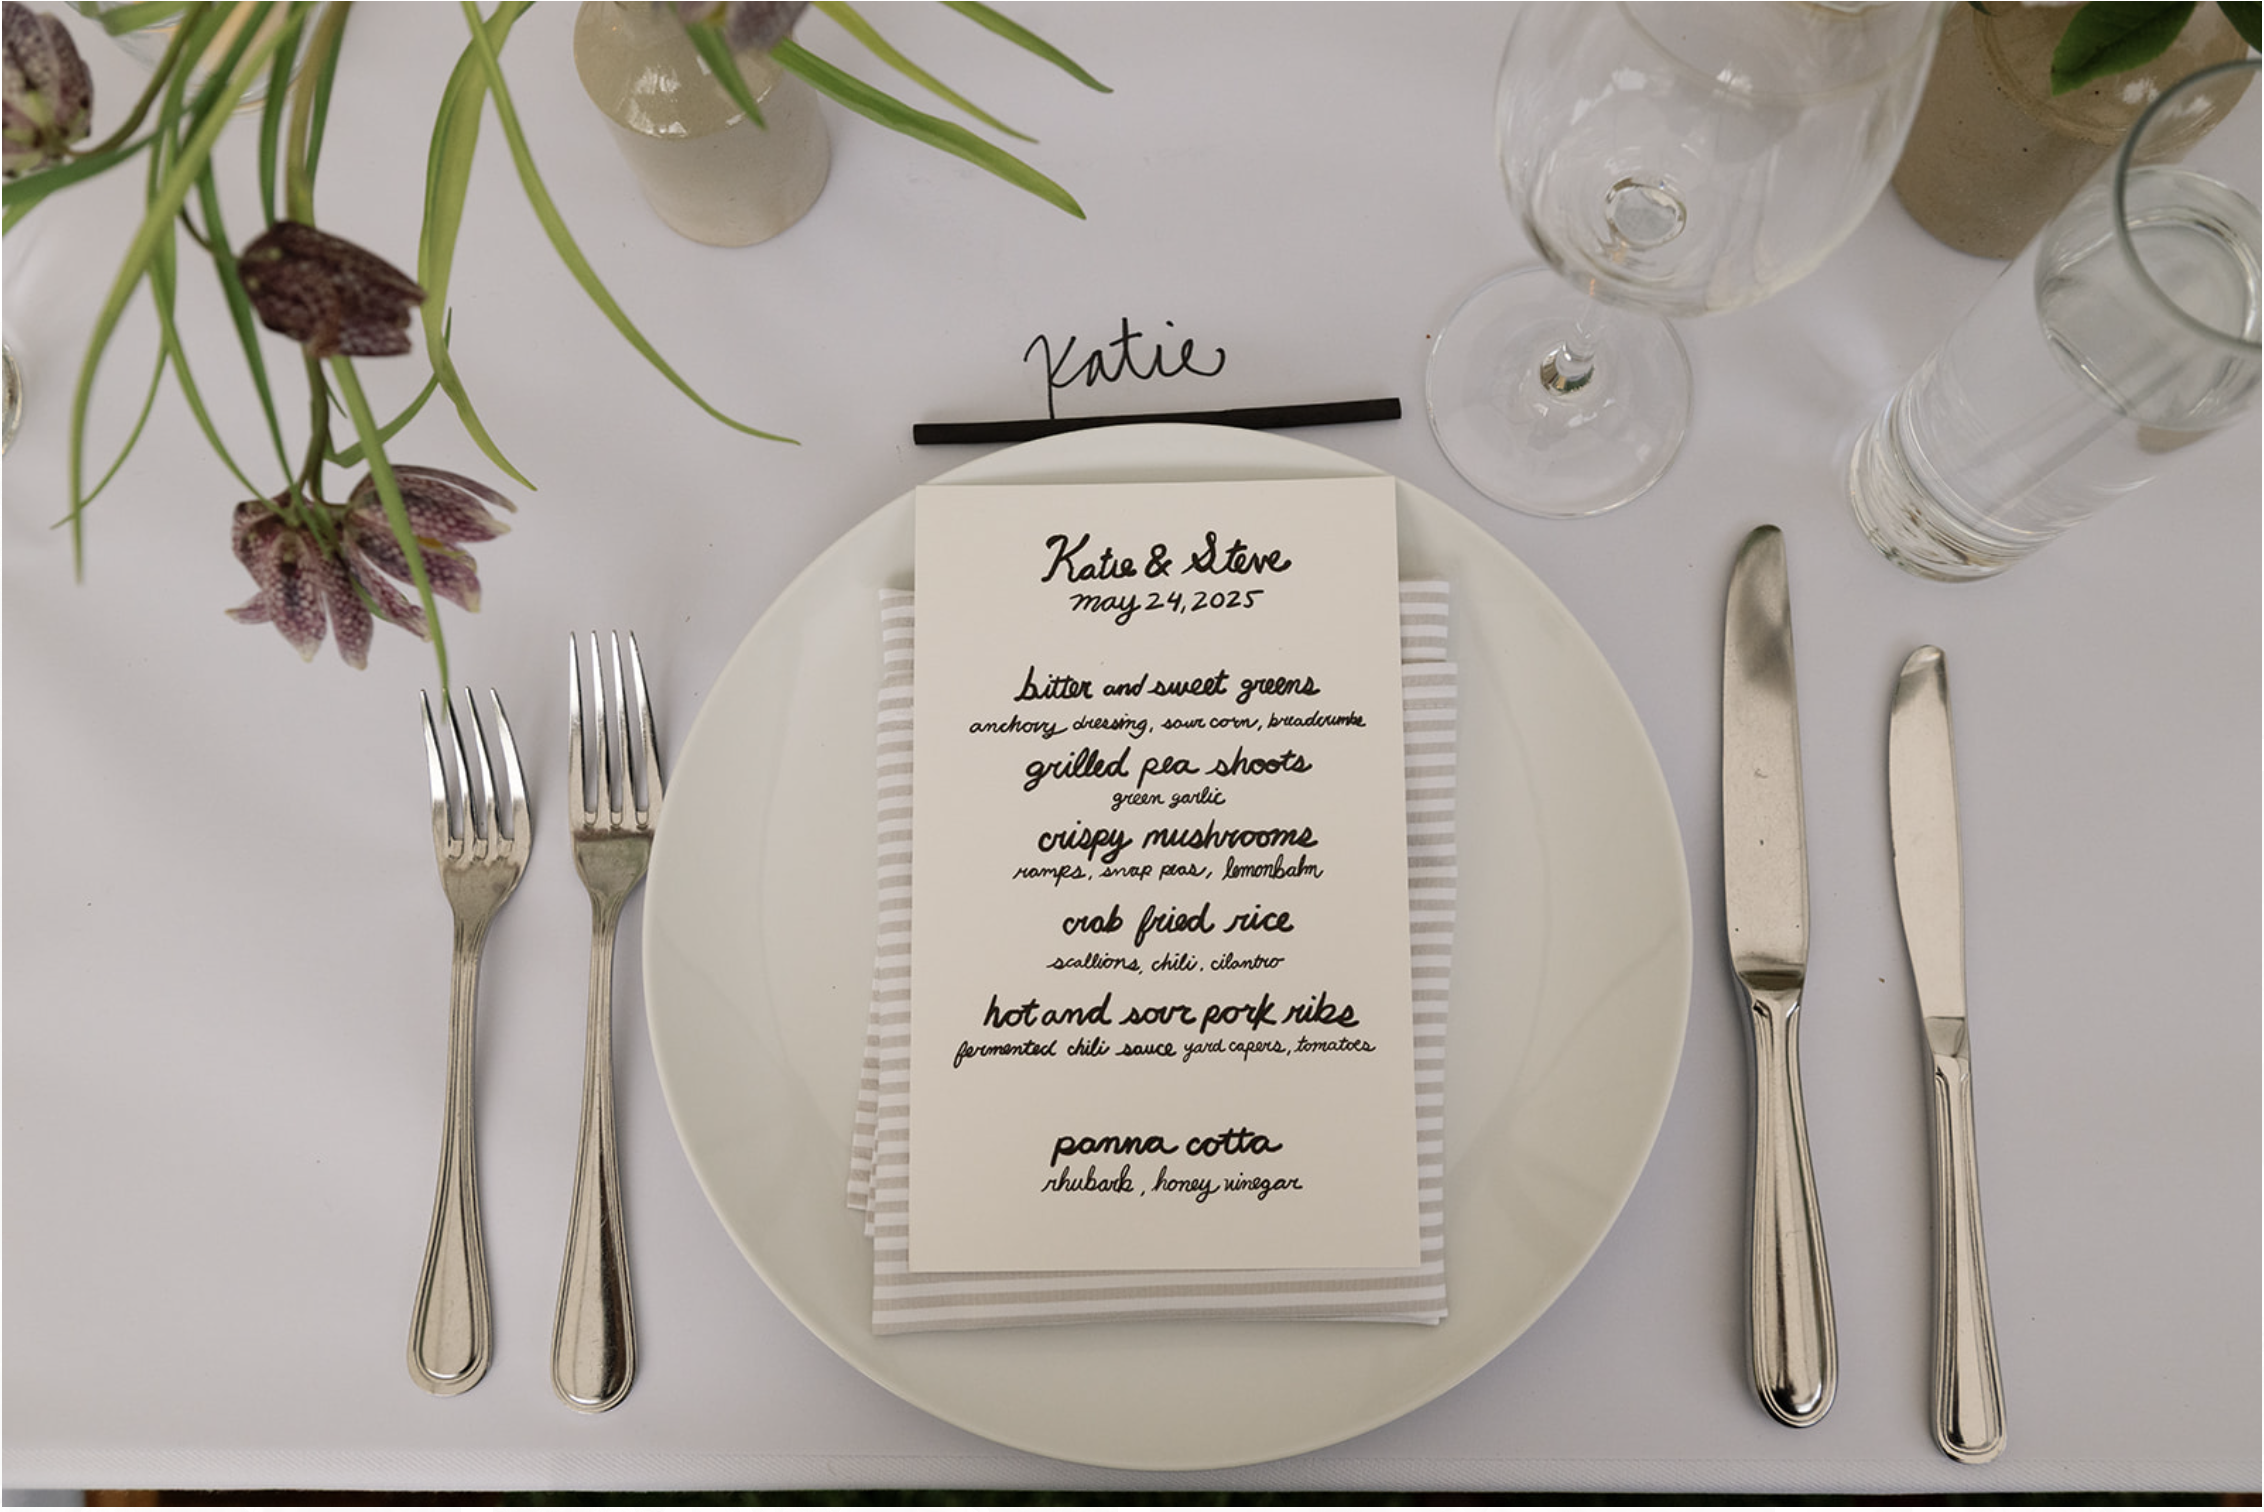 Katie
Katie & Steve
may 24, 2025
bitter and sweet greens
anchovy dressing, sour corn, breadcrumbs
grilled pea shoots
green garlic
crispy mushrooms
ramps, snap peas, lemonbalm
crab fried rice
scallions, chili, cilantro
hot and sour pork ribs
fermented chili sauce yard capers, tomatoes
panna cotta
rhubarb, honey vinegar